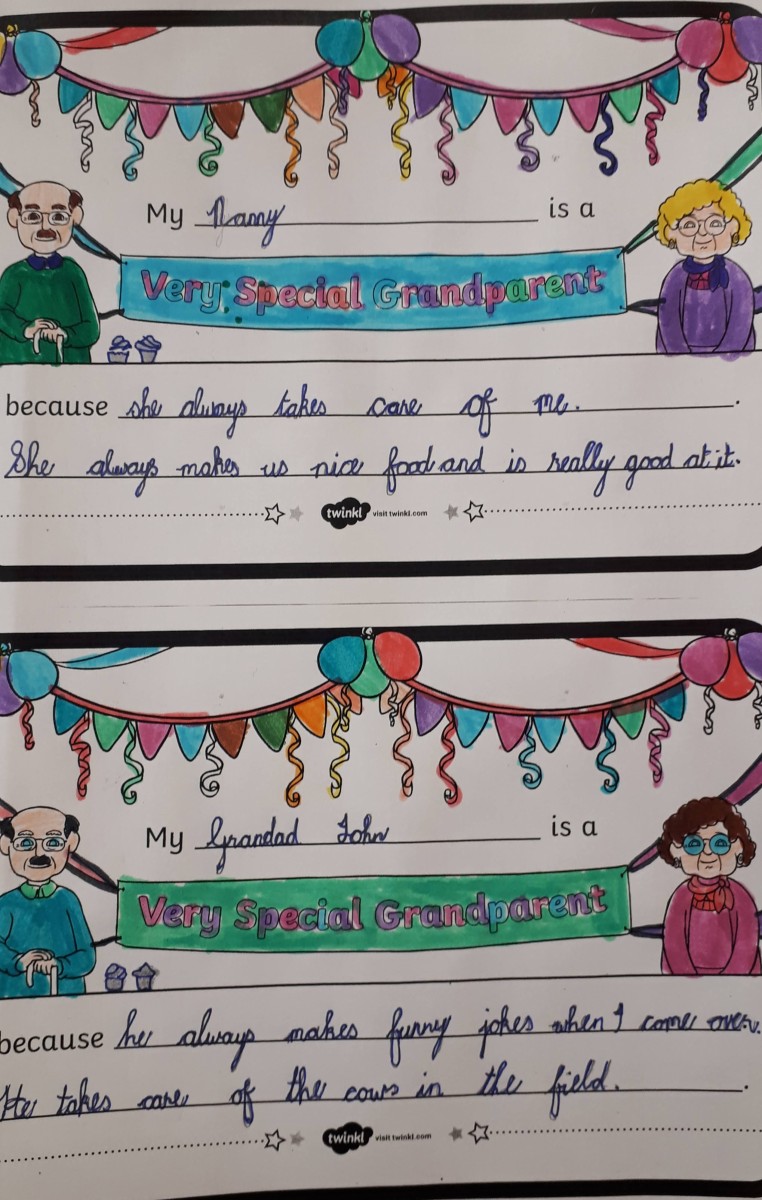 My Nanny is a
Very Special Grandparent
because she always takes care of me. .
She always makes us nice food and is really good at it.
twinkl visit twinkl.com
My Grandad John is a
Very Special Grandparent
because he always makes funny jokes when I come over.
He takes care of the cows in the field. .
twinkl visit twinkl.com